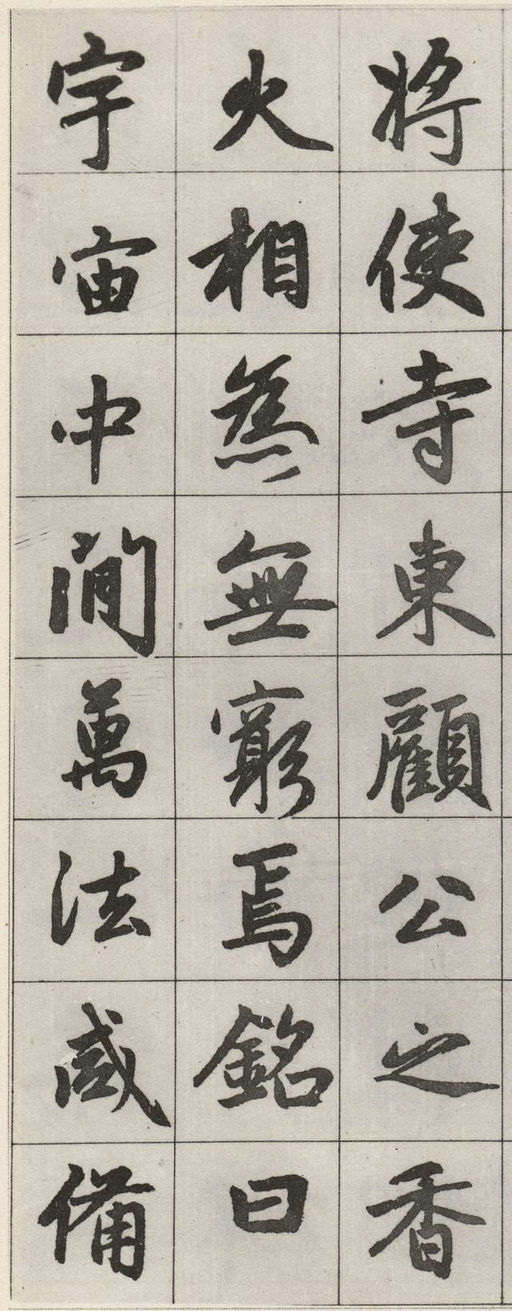 將使寺東顧公之香
火相為無窮焉銘曰
宇宙中間萬法咸備